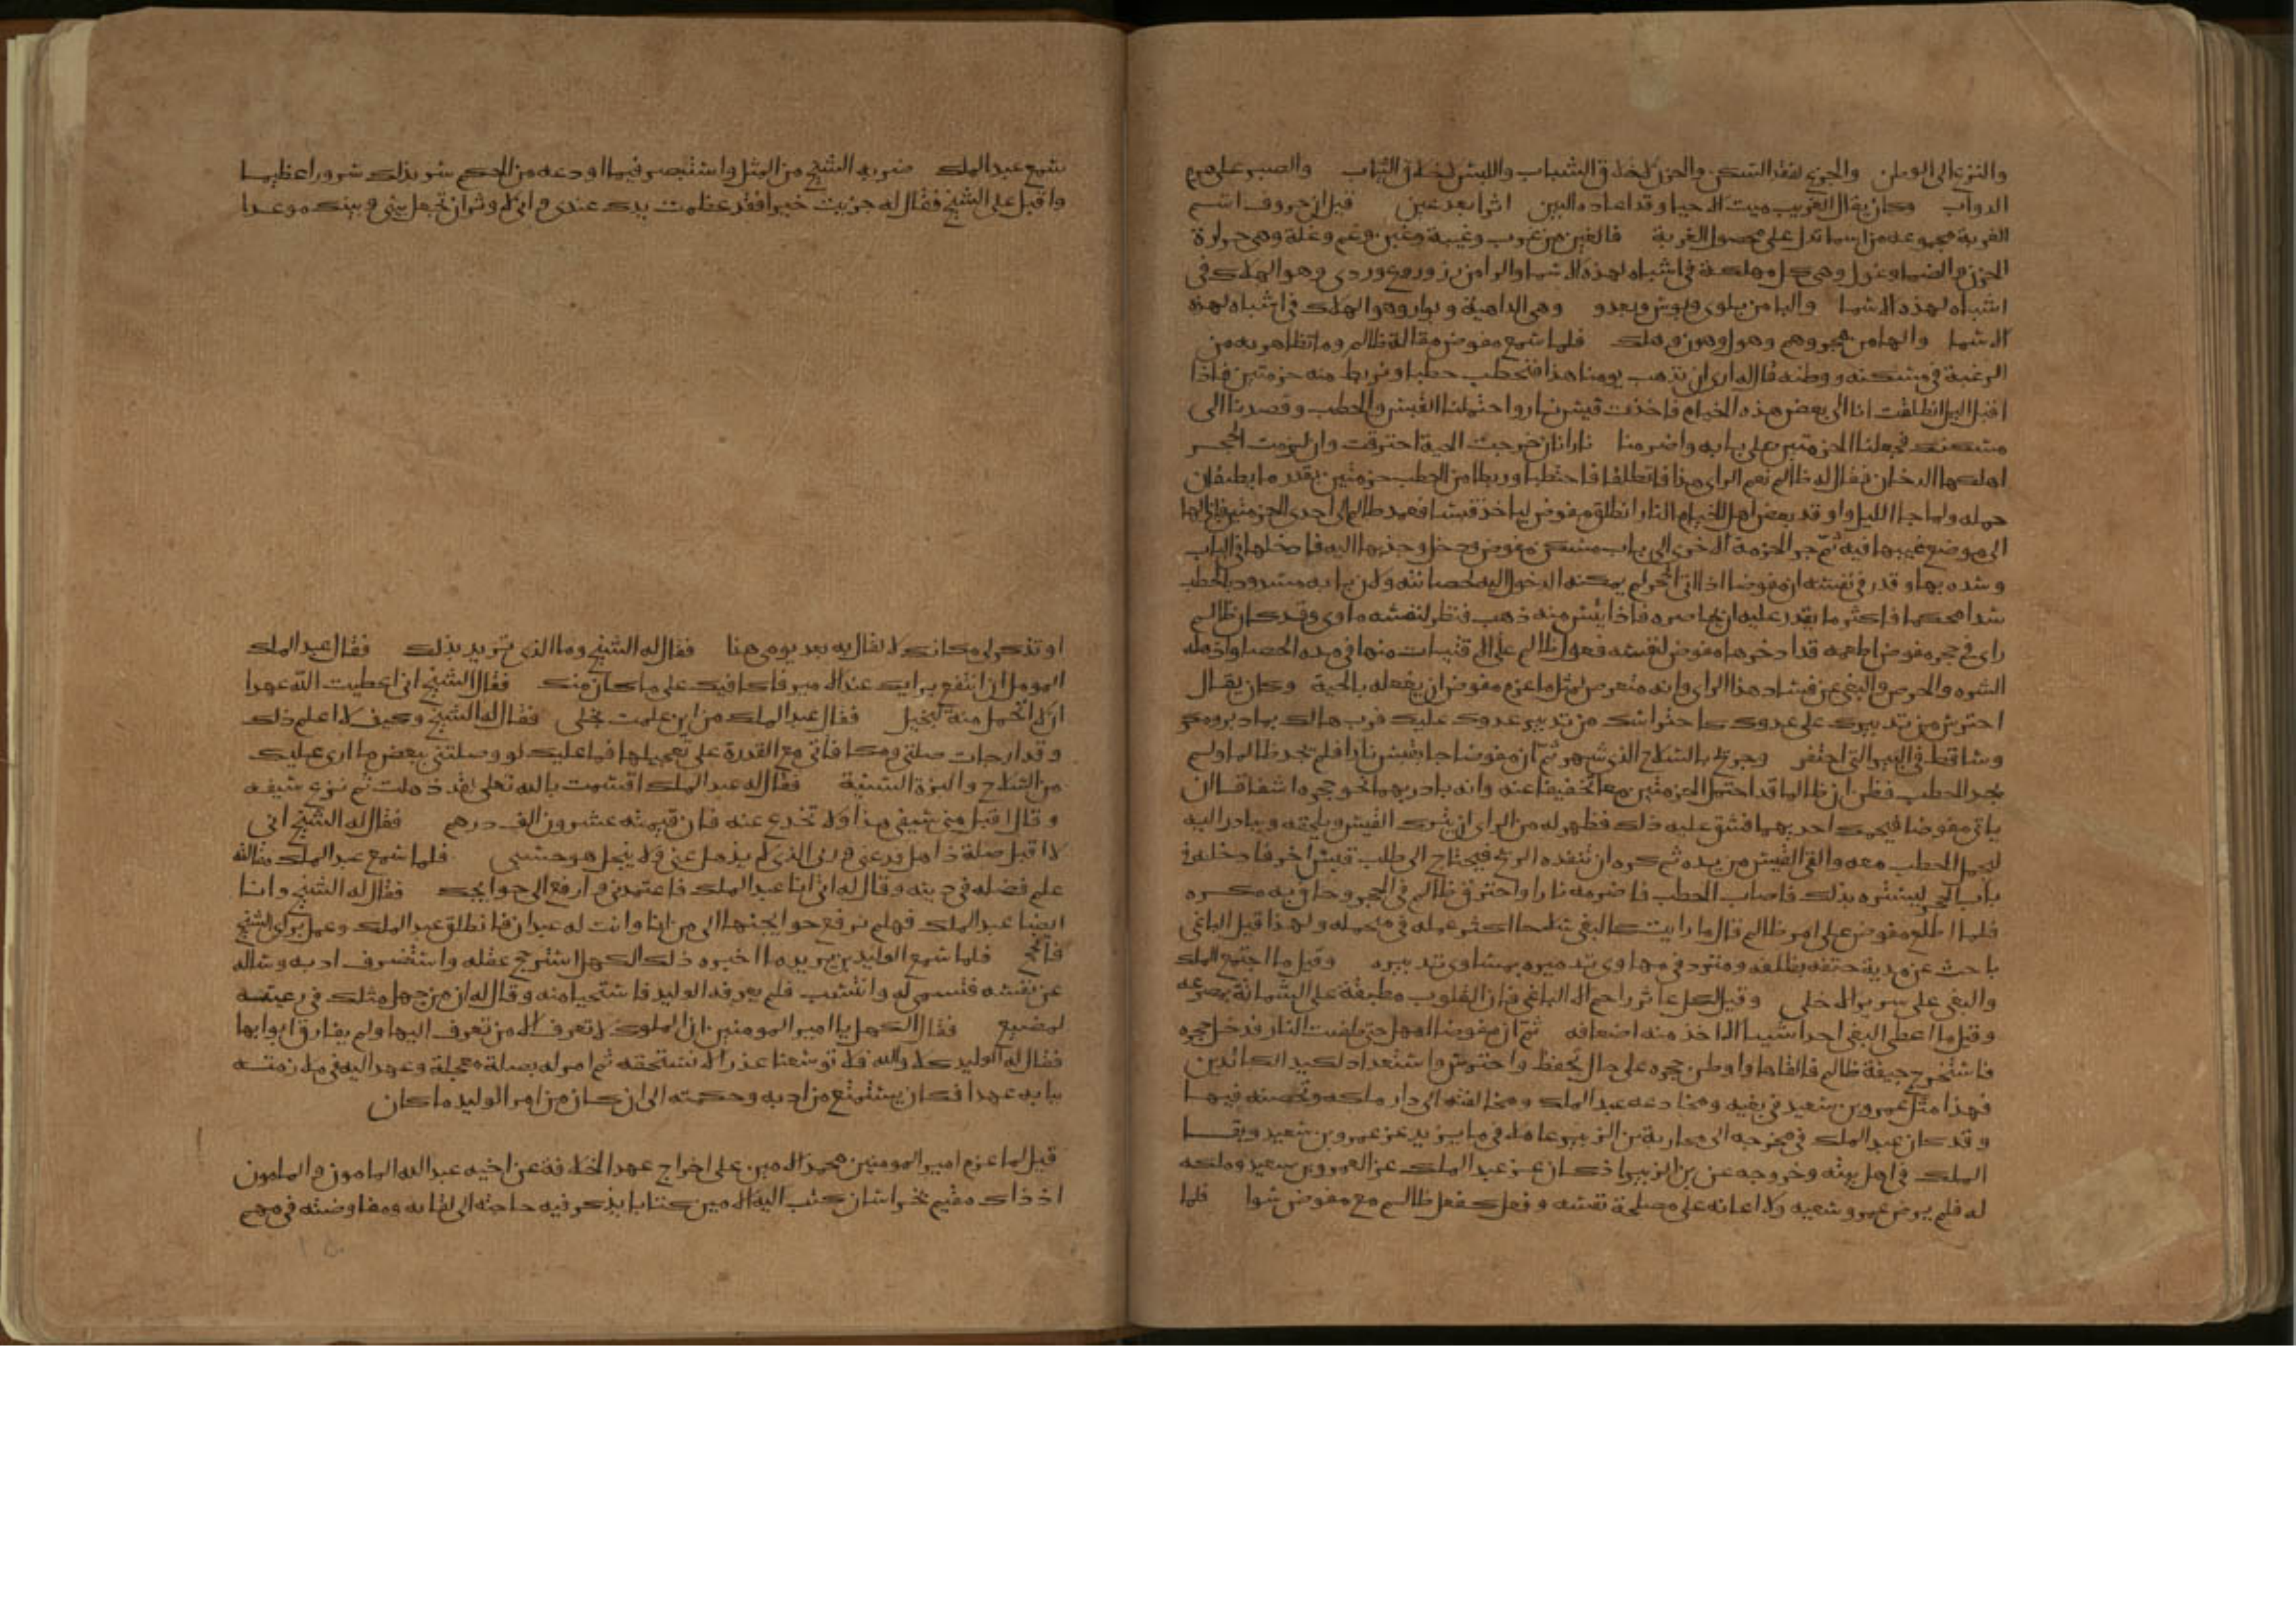 والنزع الى الوطن والجزع لفقد السكن والحزن كخلاق الشباب واللبس كخلاق الثياب والصبر على هرم
الدواب وكان يقال الغريب ميت الاحيا وقد اعاده البين اثرا بعد عين قيل ان حروف اسم
الغربة مجموعه من اسما تدل على محصول الغربة فالغين من غرب وغيبة وغبن وغم وغلة وهي حرارة
الحزن والضما وغول وهي كل مهلكة في اشباه لهذه الاسما والرا من رز وروع وردى وهو الهلاك في
اشباه لهذه الاسما والبا من بلوى وبوس وبعد و وهي الداهية وبوار وهو الهلاك في اشباه لهذه
الاسما والها من هجر وهم وهول وهون وهلك فلما سمع مفوض مقالة ظالم وما تظاهر به من
الرغبة في مسكنه ووطنه قال له ارى ان نذهب يومنا هذا فنحتطب حطبا ونربط منه حزمتين فاذا
اقبل اليل انطلقت انا الى بعض هذه الخيام فاخذت قبس نار واحتملنا القبس والحطب وقصدنا الى
مسكنك فجعلنا الحزمتين على بابه واضرمنا نارا فان خرجت الحية احترقت وان لزمت الجحر
اهلكها الدخان فقال له ظالم نعم الراي هذا فانطلقا فاحتطبا وربطا من الحطب حزمتين بقدر ما يطيقان
حمله ولما جا الليل واوقد بعض اهل الخيام النار انطلق مفوض لياخذ قبسا فعمد ظالم الى احدى الحزمتين فازالها
الى موضع غيبها فيه ثم جر الحزمة الاخرى الى باب مسكن مفوض فدخل وجذبها اليه فادخلها في الباب
وسده بها وقدر في نفسه ان مفوضا اذا اتى الجحر لم يمكنه الدخول اليه لحصانته ولان بابه مسدود بالحطب
سدا محكما فاكثر ما يقدر عليه ان يحاصره فاذا يئس منه ذهب فنظر لنفسه ماوى وقد كان ظالم
راى في جحر مفوض اطعمه قد ادخرها مفوض لنفسه فعول ظالم على الاقتيات منها في مدة الحصار واذهله
الشره والحرص والبغي عن فساد هذا الراي وانه متعرض لمثل ما عزم مفوض ان يفعله بالحية وكان يقال
احترس من تدبيرك على عدوك كاحتراسك من تدبير عدوك عليك فرب هالك بما دبر ومكر
وساقط في البير التي احتفر وجرح بالسلاح الذي شهر ثم ان مفوضا جا بقبس نارا فلم يجد ظالما ولم
يجد الحطب فظن ان ظالما قد احتمل الحزمتين معا تخفيفا عنه وانه بادر بهما نحو جحره اشفاقا ان
ياتي مفوضا فيحمل احديهما فشق عليه ذلك فظهر له من الراي ان يترك القبس ويلحقه ويبادر اليه
ليحمل الحطب معه والقى القبس من يده ثم كره ان تنفده الريح فيحتاج الى طلب قبس اخر فادخله في
باب الجحر ليستره بذلك فاصاب الحطب فاضرمه نارا واحترق ظالم في الجحر وحاق به مكره
فلما اطلع مفوض على امر ظالم قال ما رايت كالبغي سلاحا اكثر عمله في محتمله ولهذا قيل الباغي
باحث عن مدية حتفه بظلفه ومترد في مهاوى تدميره بمساوى تدبيره وقيل ما اجتمع الملك
والبغي على سرير الا خلى وقيل لكل عاثر راحم الا الباغي فان القلوب مطبقة على الشماتة بصرعه
وقيل ما اعطى البغي احدا شيا الا اخذ منه اضعافه ثم ان مفوضا امهل حتى طفيت النار فدخل جحره
فاستخرج جيفة ظالم فالقاها واوطن جحره على حال تحفظ واحتراس واستعداد لكيد الكائدين
فهذا مثل عمرو بن سعيد في بغيه ومخادعه عبد الملك ومخالفته الى دار ملكه وتحصنه فيها
وقد كان عبد الملك في مخرجه الى محاربة بن الزبير عاملا في ما يزيد عز عمرو بن سعيد وبقا
الملك في اهل بيته وخروجه عن بن الزبير اذ كان عز عبد الملك عز العمرو بن سعيد وملكه
له فلم يرض عمرو سعيه ولا اعانه على مصلحة نفسه وفعل كفعل ظالم مع مفوض سوا فلما
سمع عبد الملك ضربه الشيخ من المثل واستبصر فيما اودعه من الحكم سر بذلك سرورا عظيما
واقبل على الشيخ فقال له جزيت خيرا فقد عظمت يدك عندي واني لاوثر ان تجعل بيني وبينك موعدا
او تذكر لي مكانك لالقاك به بعد يومي هذا فقال له الشيخ وما الذي تريد بذلك فقال عبد الملك
اومل ان انتفع برايك عند الامير فاكافيك على ما كان منك فقال الشيخ اني اعطيت الله عهدا
ان لا اتحمل منة لبخيل فقال عبد الملك من اين علمت بخلي فقال له الشيخ وكيف لا اعلم ذلك
وقد ارجات صلتي ومكافاتي مع القدرة على تعجيلها فما عليك لو وصلتني ببعض ما ارى عليك
من السلاح والبزة السنية فقال له عبد الملك اقسمت بالله تعلى لقد ذهلت ثم نزع سيفه
وقال اقبل مني سيفي هذا ولا تخدع عنه فان قيمته عشرون الف درهم فقال له الشيخ اني
لا اقبل صلة ذاهل فدعني وربي الذي لا يذهل عني ولا يبخل هو حسبي فلما سمع عبد الملك مقالته
علم فضله في دينه وقال له اني انا عبد الملك فاعتمدني وارفع الي حوايجك فقال له الشيخ وانا
ايضا عبد الملك فهلم نرفع حوايجنا الى من انا وانت له عبدان فانطلق عبد الملك وعمل براي الشيخ
فانجح فلما سمع الوليد بن يزيد ما اخبره ذلك الكهل استرجح عقله واستضرف ادبه وساله
عن نفسه فتسمى له وانتسب فلم يعرفه الوليد فاستحيا منه وقال له ان من جهل مثلك في رعيته
لمضيع فقال الكهل يا امير المومنين ان الملوك لا تعرف الا من تعرف اليها ولم يفارق ابوابها
فقال له الوليد كلا والله فلا توسعنا عذرا لا نستحقه ثم امر له بصلة معجلة وعهد اليه في ملازمته
بابه عهدا فكان يستمتع من ادبه وحكمته الى ان كان من امر الوليد ما كان
قيل لما عزم امير المومنين محمد الامين على اخراج عهد الخلافة عن اخيه عبد الله المامون والمامون
اذ ذاك مقيم بخراسان كتب اليه الامين كتابا يذكر فيه حاجته الى لقايه ومفاوضته في مهم